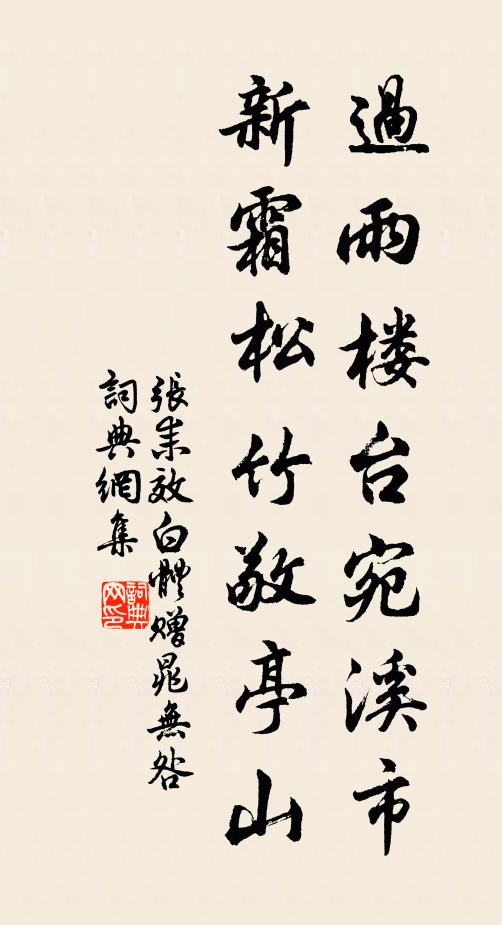 過雨楼台宛溪市
新霜松竹敬亭山
張耒效白體贈晁無咎
詞典網集
詞典
网印